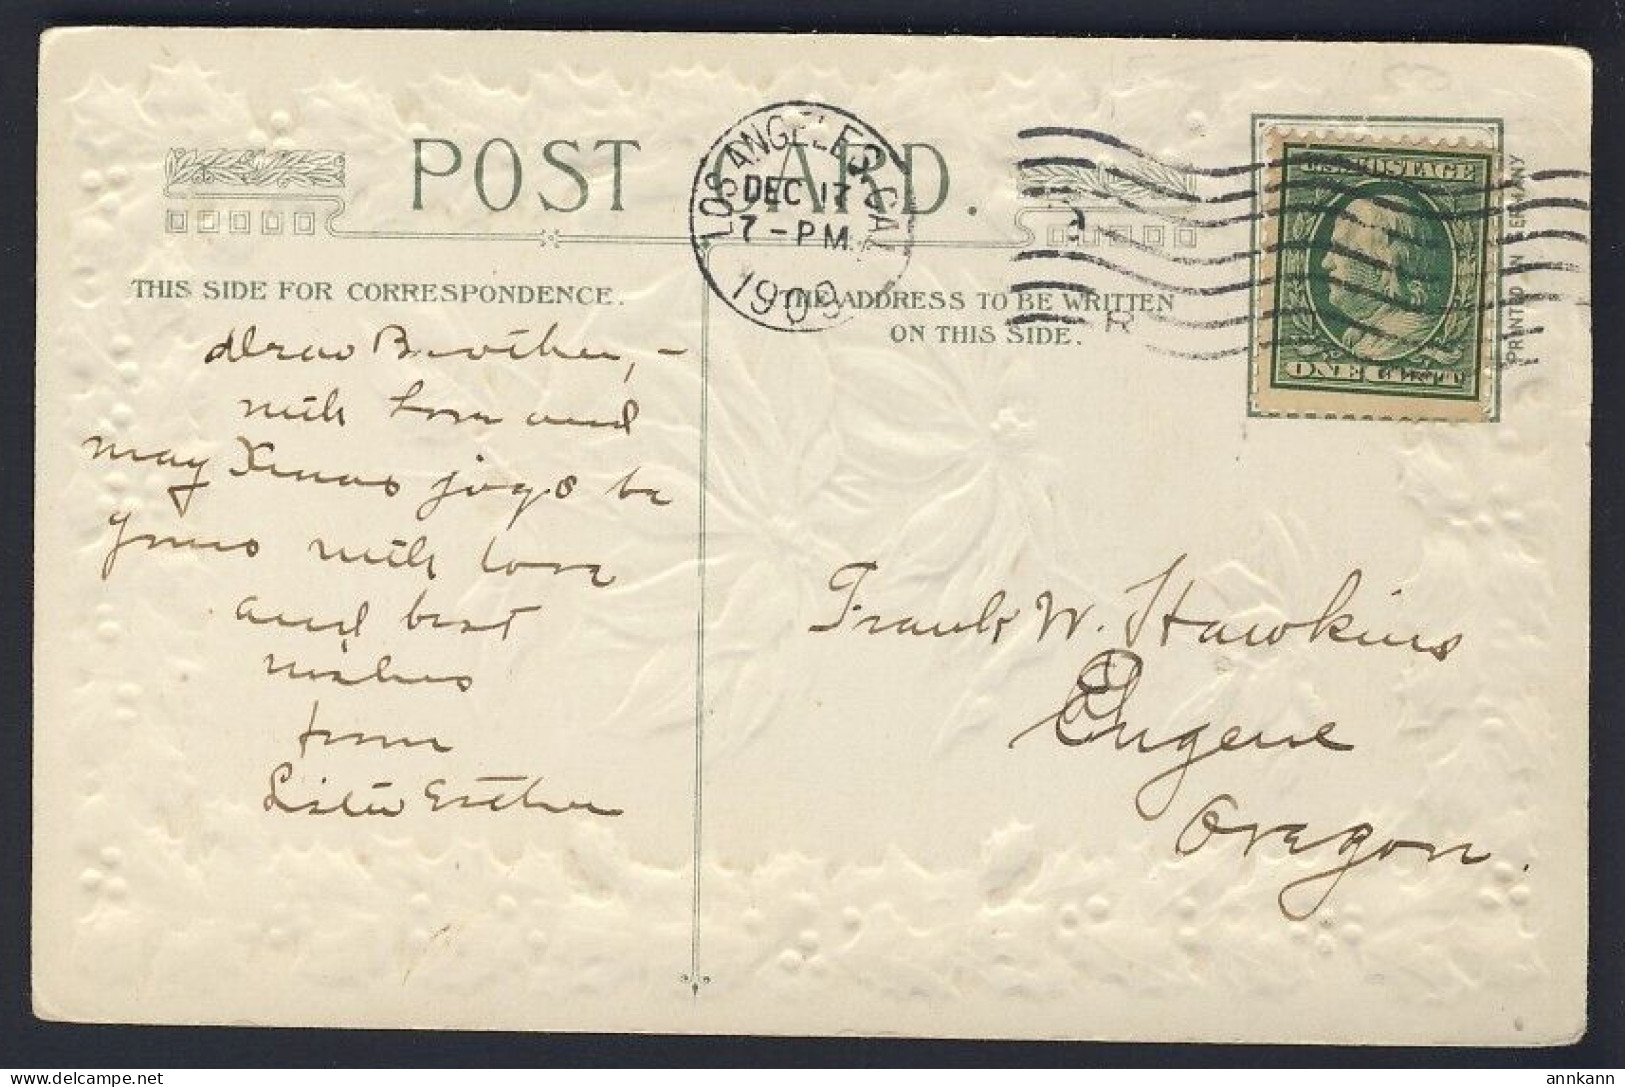 POST CARD.
LOS ANGELES, CAL.
DEC 17
7-PM.
1909
R
U.S. POSTAGE
ONE CENT
PRINTED IN GERMANY
THIS SIDE FOR CORRESPONDENCE.
THE ADDRESS TO BE WRITTEN
ON THIS SIDE.
Dear Brother, -
with love and
may Xmas joys be
yours with love
and best
wishes
from
Sister Esther
Frank W. Hawkins
Eugene
Oregon.
delcampe.net
annkann